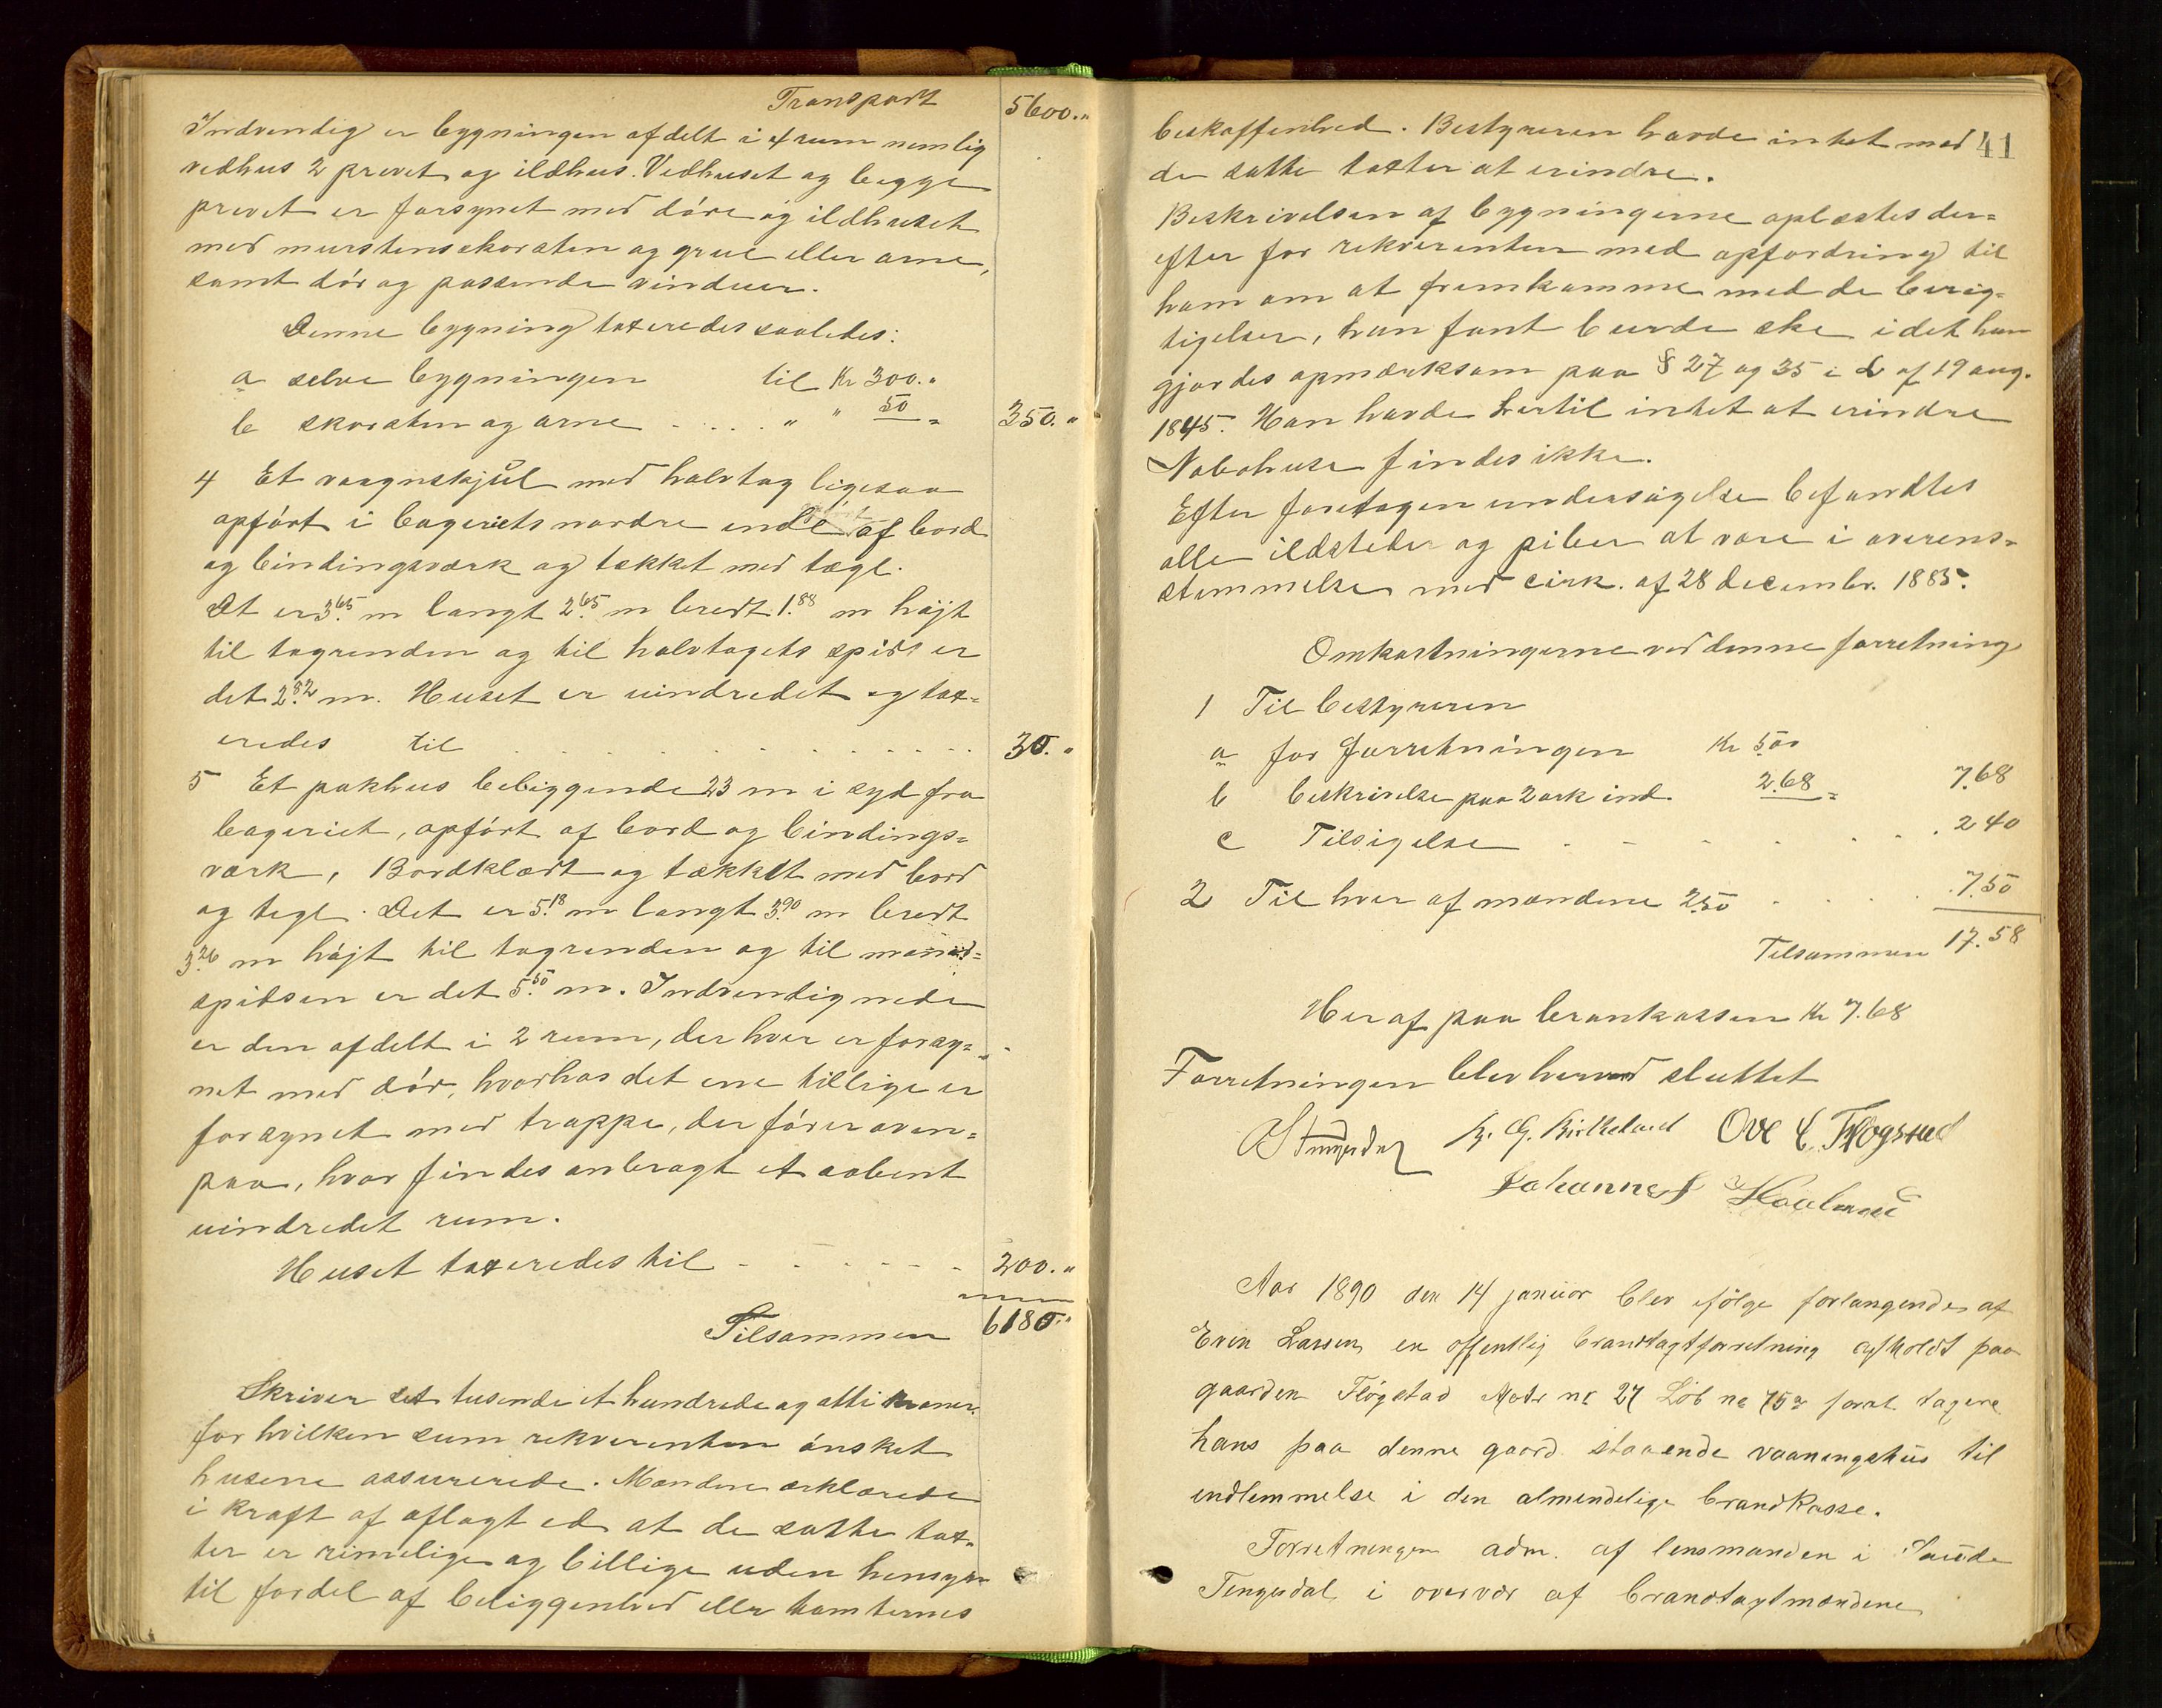 Transport 5600."
Indvendig er bygningen afdelt i 4 rum nemlig
vedhus 2 prevet og ildhus. Vedhuset og begge
prevet er forsynet med döre og ildhuset
med murstensskorsten og grue eller arne,
samt dör og passende vinduer.
Denne bygning taxeredes saaledes:
a selve bygningen til Kr 300."
b skorsten og arne . . . . " " 50 = 350."
4 Et vognskjul med halvtag ligesaa
opfört i bageriets nordre ende af bord
og bindingsværk og tækket med tægl.
Det er 3.65 m langt 2.65 m bredt 1.88 m højt
til tagrenden og til halvtagets spids er
det 2.82 m. Huset er uindredet og tax=
eredes til . . . . . . . . . . 30."
5 Et pakhus beliggende 23 m i syd fra
bageriet, opfört af bord og bindings=
værk, Bordklædt og tækket med bord
og tegl. Det er 5.18 m langt 3.90 m bredt
3.26 m højt til tagrenden og til mønid=
spidsen er det 5.50 m. Indvendig nede
er den afdelt i 2 rum, der hver er forsy=
net med dör, hvorhos det ene tillige er
forsynet med trappe, der förer oven=
paa, hvor findes anbragt et aabent
uindredet rum.
Huset taxeredes til - . - . - - - 200."
Tilsammen 6180."
Skriver sex tusende et hundrede og otti kroner
for hvilken sum rekverenten önsket
husene assurerede. Mændene erklærede
i kraft af aflagt ed at de satte tax=
ter er rimelige og billige uden hensyn
til fordel af beliggenhed eller tomternes
41
beskaffenhed. Bestyreren havde intet med
de satte taxter at erindre.
Beskrivelsen af bygningerne oplæstes der=
efter for rekvirenten med opfordring til
ham om at fremkomme med de berig=
tigelser, han fant burde ske i det han
gjordes opmærksom paa § 27 og 35 i L af 19 aug.
1845. Han havde hertil intet at erindre
Nabohuse findes ikke.
Efter foretagen undersögelse befandtes
alle ildsteder og piber at være i overens=
stemmelse med cirk. af 28 decembr. 1885.
Omkostningerne ved denne forretning
1 Til bestyreren
a for forretningen Kr 5.00
b beskrivelse paa 2 ark ind. 2.68 = 7.68
c Tilsigelse . - - . . . . 2.40
2 Til hver af mændene 2.50 . . . . 7.50
Tilsammen 17.58
Heraf paa brankassen Kr 7.68
Forretningen blev herved sluttet
Ove L Fløgstad
Johannes
Aar 1890 den 14 januar blev ifölge forlangende af
Even Larsen en offentlig brandtagtforretning afholdt paa
gaarden Flögstad Matr nr 27 Löb nr 75a forat tagere
hans paa denne gaard staaende vaaningshus til
indlemmelse i den almendelige brandkasse.
Forretningen adm. af lensmanden i Saude
Tengesdal i overvær af brandtagtmændene